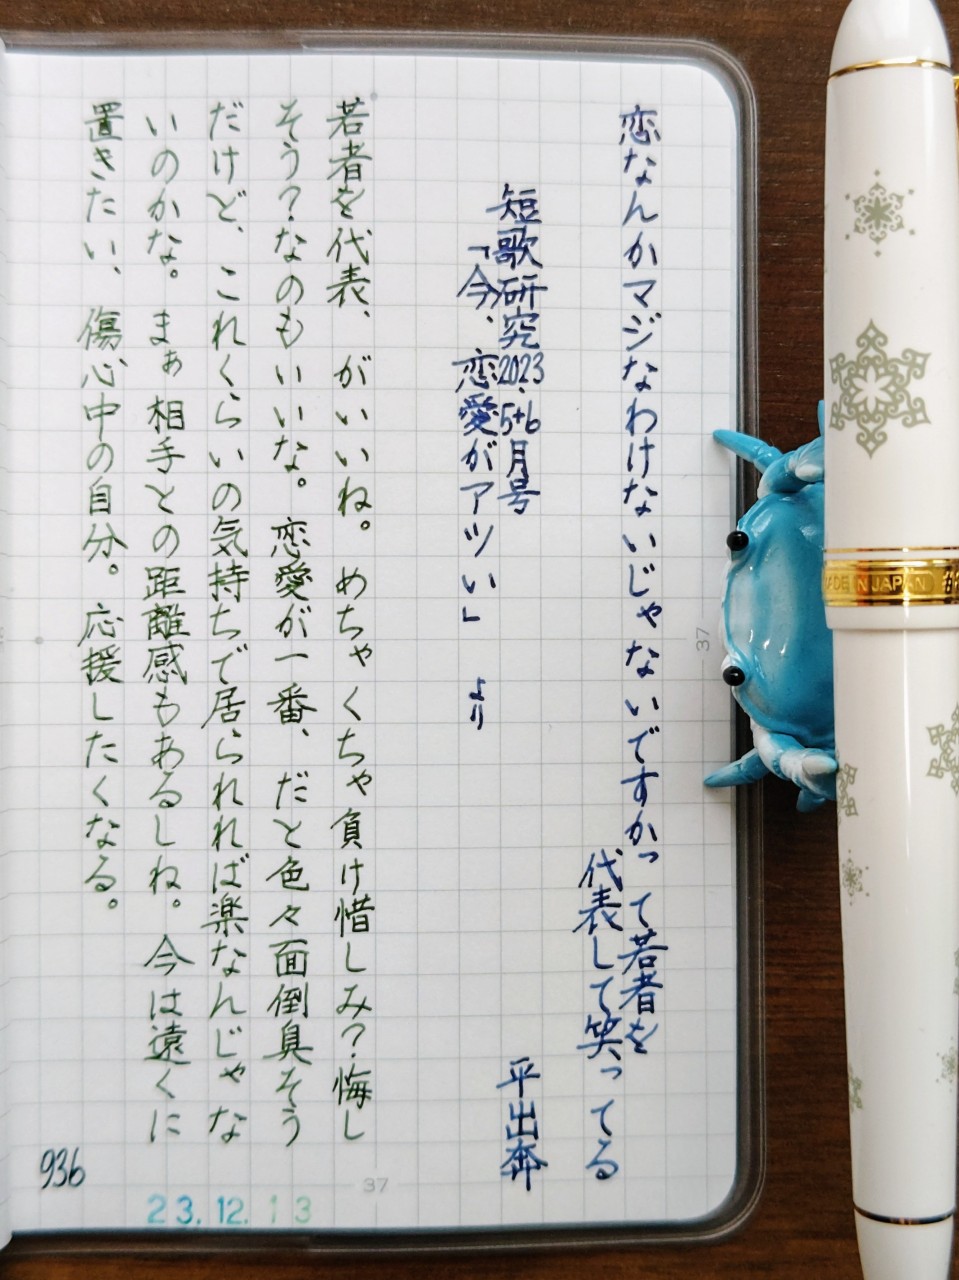 恋なんかマジなわけないじゃないですかって若者を
代表して笑ってる
短歌研究2023.5+6月号
「今、恋愛がアツい」 より
平出奔
若者を代表、がいいね。めちゃくちゃ負け惜しみ?悔し
そう?なのもいいな。恋愛が一番、だと色々面倒臭そう
だけど、これくらいの気持ちで居られれば楽なんじゃな
いのかな。まぁ相手との距離感もあるしね。今は遠くに
置きたい、傷心中の自分。応援したくなる。
936
23.12.13
37
37
MADE IN JAPAN